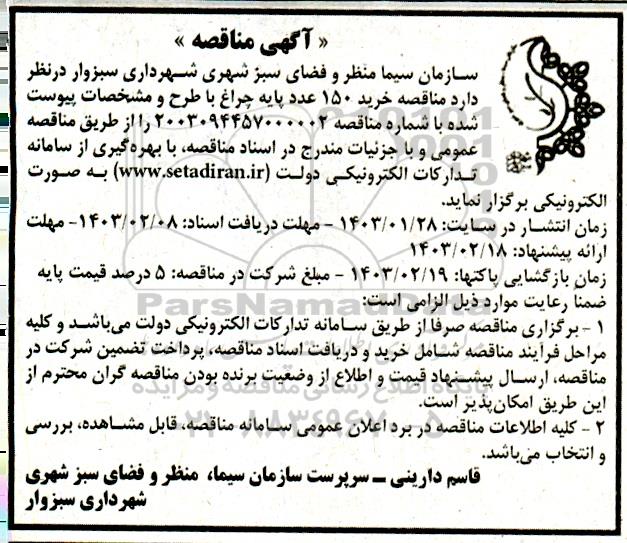 « آگهی مناقصه »
سازمان سیما منظر و فضای سبز شهری شهرداری سبزوار درنظر
دارد مناقصه خرید ۱۵۰ عدد پایه چراغ با طرح و مشخصات پیوست
شده با شماره مناقصه ۲۰۰۳۰۹۴۴۵۷۰۰۰۰۰۲ را از طریق مناقصه
عمومی و با جزئیات مندرج در اسناد مناقصه، با بهره‌گیری از سامانه
تدارکات الکترونیکی دولت (www.setadiran.ir) به صورت
الکترونیکی برگزار نماید.
زمان انتشار در سایت: ۱۴۰۳/۰۱/۲۸ - مهلت دریافت اسناد: ۱۴۰۳/۰۲/۰۸- مهلت
ارائه پیشنهاد: ۱۴۰۳/۰۲/۱۸
زمان بازگشایی پاکتها: ۱۴۰۳/۰۲/۱۹ - مبلغ شرکت در مناقصه: ۵ درصد قیمت پایه
ضمناً رعایت موارد ذیل الزامی است:
۱ - برگزاری مناقصه صرفا از طریق سامانه تدارکات الکترونیکی دولت می‌باشد و کلیه
مراحل فرآیند مناقصه شامل خرید و دریافت اسناد مناقصه، پرداخت تضمین شرکت در
مناقصه، ارسال پیشنهاد قیمت و اطلاع از وضعیت برنده بودن مناقصه گران محترم از
این طریق امکان‌پذیر است.
۲ - کلیه اطلاعات مناقصه در برد اعلان عمومی سامانه مناقصه، قابل مشاهده، بررسی
و انتخاب می‌باشد.
قاسم دارینی ـ سرپرست سازمان سیما، منظر و فضای سبز شهری
شهرداری سبزوار
ParsNamadData
پایگاه اطلاع رسانی مناقصه و مزایده
۰۲۱-۸۸۳۴۹۶۷۰-۵